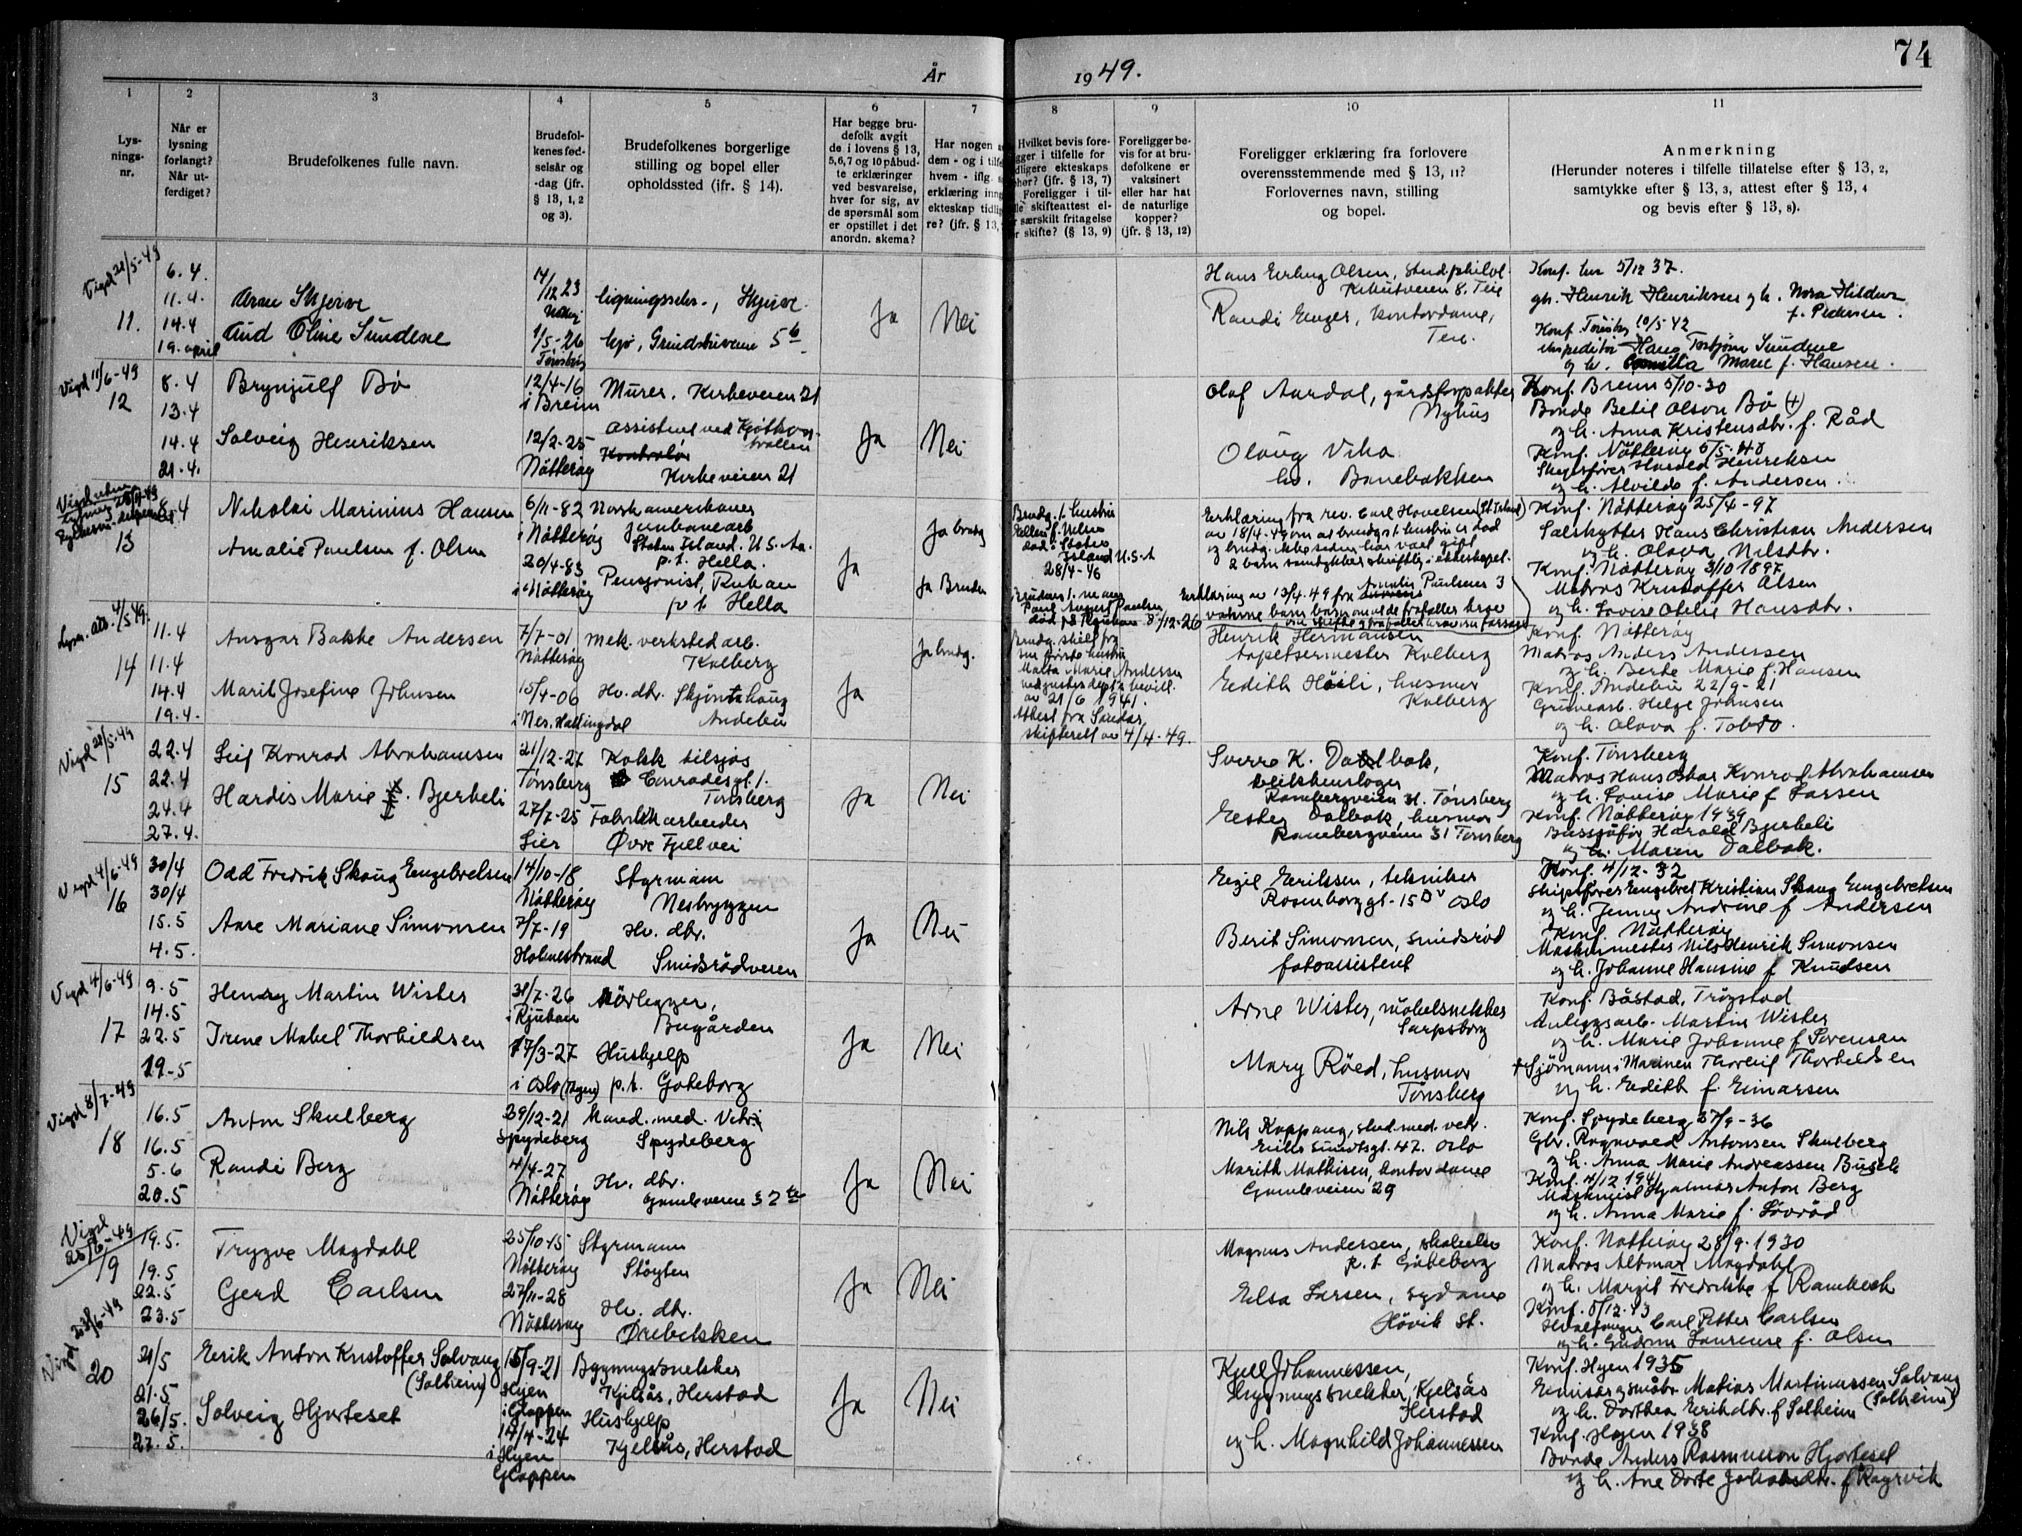 74
År 1949.
1
Lys-
nings-
nr.
2
Når er
lysning
forlangt?
Når ut-
ferdiget?
3
Brudefolkenes fulle navn.
4
Brudefol-
kenes fød-
selsår og
-dag (jfr.
§ 13, 1, 2
og 3).
5
Brudefolkenes borgerlige
stilling og bopel eller
opholdssted (ifr. § 14).
6
Har begge bru-
defolk avgit
de i lovens § 13,
5, 6, 7 og 10 påbud-
te erklæringer
ved besvarelse,
hver for sig, av
de spørsmål som
er opstillet i det
anordn. skema?
7
Har nogen
dem - og i tilfe
hvem - iflg.
erklæring inng
ekteskap tidli
re? (jfr. § 13,
8
Hvilket bevis fore-
gger i tilfelle for
dligere ekteskaps
pher? (jfr. § 13, 7)
Foreligger i til-
le skifteattest el-
r særskilt fritagelse
r skifte? (§ 13, 9)
9
Foreligger be-
vis for at bru-
defolkene er
vaksinert
eller har hat
de naturlige
kopper?
(jfr. § 13, 12)
10
Foreligger erklæring fra forlovere
overensstemmende med § 13, 11?
Forlovernes navn, stilling
og bopel.
11
Anmerkning
(Herunder noteres i tilfelle tillatelse efter § 13, 2,
samtykke efter § 13, 3, attest efter § 13, 4
og bevis efter § 13, 8).
Vigd 21/5-49
11.
6.4.
11.4.
14.4
19. april
Arne Skjerve
Aud Oline Sundene
14/12 23
1/5-26
Tønsberg
ligningssekr., Skjerve
hjv, Grindstuveien 5b
Ja
Nei
Hans Erling Olsen, stud. philol.
Teie
Randi Enger, kontordame,
Teie.
Konf. her 5/12 37.
gb. Henrik Henriksen og h. Nora Hildur
f. Pedersen.
Konf. Tønsberg 10/5-42
ekspeditør Hans Torbjørn Sundene
og h. Camilla Marie f. Hansen.
Vigd 11/6-49
12
8.4
13.4
14.4
21.4.
Brynjulf Bø
Solveig Henriksen
12/4-16
i Breim
12/2-25
Nøtterøy
Murer, Kirkeveien 21
assistent ved Kjøttkon-
trollen
Kirkeveien 21
Ja
Nei
Olaf Aardal, gårdsforpakter
Nyhus
Olaug Vika
hv. Banebakken
Konf. Breim 5/10-30
Bonde Betil Olson Bø (+)
og h. Anna Kristensdtr. f. Råd
Konf. Nøtterøy 5/5-40
Skipsfører Harald Henriksen
og h. Alvilde f. Andersen.
13
8.4
Nikolai Marinius Hansen
Amalie Paulsen f. Olsen
6/11-82
i Nøtterøy
20/4-83
i Nøtterøy
Norsk amerikaner
Jernbanearb
Staten Island. U.S.A.
p.t. Hella.
Pensjonist, Rukan
p.t. Hella
Ja
Ja brudg
Ja Bruden
Brudg. f. hustru
Ellen f. Nelson
død i Staten
Island U.S.A
28/4-46
Brudens f. mann
Paul August Paulsen
død på Rjukan 8/12-26
Erklæring fra rev. Carl Havelsen (St. Island)
av 18/4-49 om at brudgs f. hustru er død
og brudg. ikke siden har vært gift
2 barn samtykker skriftlig i ekteskapet.
Erklæring av 13/4.49 fra Amalie Paulsens 3
voksne barn
Konf. Nøtterøy 25/4-97
Selskytter Hans Christian Andersen
og h. Olava Nilsdtr.
Konf. Nøtterøy 3/10 1897
Matros Kristoffer Olsen
og h. Lovise Otelie Hansdtr.
Lysn. att. 4/5-49.
14
11.4
11.4
14.4
19.4.
Ansgar Bakke Andersen
Marit Josefine Johnsen
7/7-01
Nøtterøy
15/4-06
i Nes, Hallingdal
Mek. verkstedarb.
Kolberg
Hv. dtr. Skjøntshaug
Andebu
Ja
Ja brudg.
Brudg. skilt fra
sin første hustru
Malla Marie Andersen
ved justisdep.s bevill.
av 21/6 1941.
Attest fra Sandar
skifterett av 4/4-49.
Henrik Hermansen
Tapetsermester Kolberg
Edith Høili, husmor
Kolberg
Konf. Nøtterøy
Matros Anders Andersen
og h. Berte Marie f. Hansen
Konf. Andebu 22/9-21
Gruvearb. Helge Johnsen
og h. Olava f. Tobro.
Vigd 21/5-49
15
22.4
22.4
24.4
27.4.
Leif Konrad Abrahamsen
Hardis Marie Bjerkeli
21/12-27
Tønsberg
27/7-25
Lier
Kokk tilsjøs
Conradisgt. 1.
Tønsberg
Fabrikkarbeider
Øvre Fjellvei
Ja
Nei
Sverre K. Dalbak,
Rambergveien 31. Tønsberg
Ester Dalbak, husmor
Rambergveien 31 Tønsberg
Konf. Tønsberg
Matros Hans Oskar Konrad Abrahamsen
og h. Lovise Marie f Larsen
Konf. Nøtterøy 1939
Bussjåfør Harald Bjerkeli
og h. Maren Dalbak.
Vigd 4/6-49
16
30/4
30/4
15.5
4.5.
Odd Fredrik Skaug Engebretsen
Aase Mariane Simonsen
14/10-18
Nøtterøy
7/7-19
Holmestrand
Styrmann
Nesbryggen
Hv. dtr.
Smidsrødveien
Ja
Nei
Egil Eriksen, tekniker
Rosenborggt. 15 Dv Oslo
Berit Simonsen, Smidsrød
fotoassistent
Konf. 4/12-32
Skipsfører Engebret Kristian Skaug Engebretsen
og h. Jenny Andrine f Andersen
Konf. Nøtterøy
Maskinmester Nils Henrik Simonsen
og h. Johanne Hansine f Knudsen
Vigd 4/6-49
17
9.5
14.5
22.5
19.5
Henry Martin Wister
Irene Mabel Thorkildsen
31/7-26
i Rjukan
17/3-27
i Oslo (Aker)
Rørlegger,
Bugården
Hushjelp
p.t. Gøteborg
Ja
Nei
Arne Wister, møbelsnekker
Sarpsborg
Mary Røed, husmor
Tønsberg
Konf. Båstad, Trøgstad
Anleggsarb. Martin Wister
og h. Marie Johanne f Sørensen
+ Sjømann i Marinen Thorleif Thorkildsen
og h. Edith f. Einarsen
Vigd 8/7-49
18
16.5
16.5
5.6
20.5
Anton Skulberg
Randi Berg
29/12-21
Spydeberg
4/4-27
Nøtterøy
Kand. med. Vetr.
Spydeberg
Hv. dtr.
Gamleveien 32
Ja
Nei
Nils Koppang, stud. med. vetr.
Eilert Sundtsgt. 47. Oslo
Marith Mathisen, kontordame
Gamleveien 29
Konf. Spydeberg 27/9-36
Gbr. Ragnvald Antonsen Skulberg
og h. Anna Marie Andreassen
Konf. 4/12 1941
Maskinist Hjalmar Anton Berg
og h. Anna Marie f. Løvrød
Vigd
25/6-49
19
19.5.
19.5
22.5
23.5
Trygve Magdahl
Gerd Carlsen
25/10-15
Nøtterøy
27/11-28
Nøtterøy
Styrmann
Støyten
Hv. dtr.
Ørebekken
Ja
Nei
Magnus Andersen,
p.t Gøteborg
Elsa Larsen, sydame
Høvik St.
Konf. Nøtterøy 28/9.1930
Matros Altmar Magdahl
og h. Margit Fredrikke f Rambech
Konf. 5/12-43
Hvalfanger Carl Petter Carlsen
og h. Gudrun Laurense f. Olsen
Vigd 23/6-49
20
21/5
21.5
26/5.
27.5.
Eerik Anton Kristoffer Solvang
(Solheim)
Solveig Hjorteset
15/9-21
Hyen
i Gloppen
14/4-24
i Hyen
Gloppen
Bygningssnekker
Kjelsås, Herstad
Hushjelp
Kjelsås, Herstad
Ja
Nei
Kjell Johannessen,
Bygningssnekker, Kjelsås
Herstad
og h. Magnhild Johannessen
Konf. Hyen 1935
Emisær og småbr. Matias Martinussen Solvang
(Solheim)
og h. Dorthea Eerikdtr. f Solheim
Konf. Hyen 1938
Bonde Anders Rasmusson Hjorteset
og h. Ane Dorte Jakobsdtr. f Røyrvik